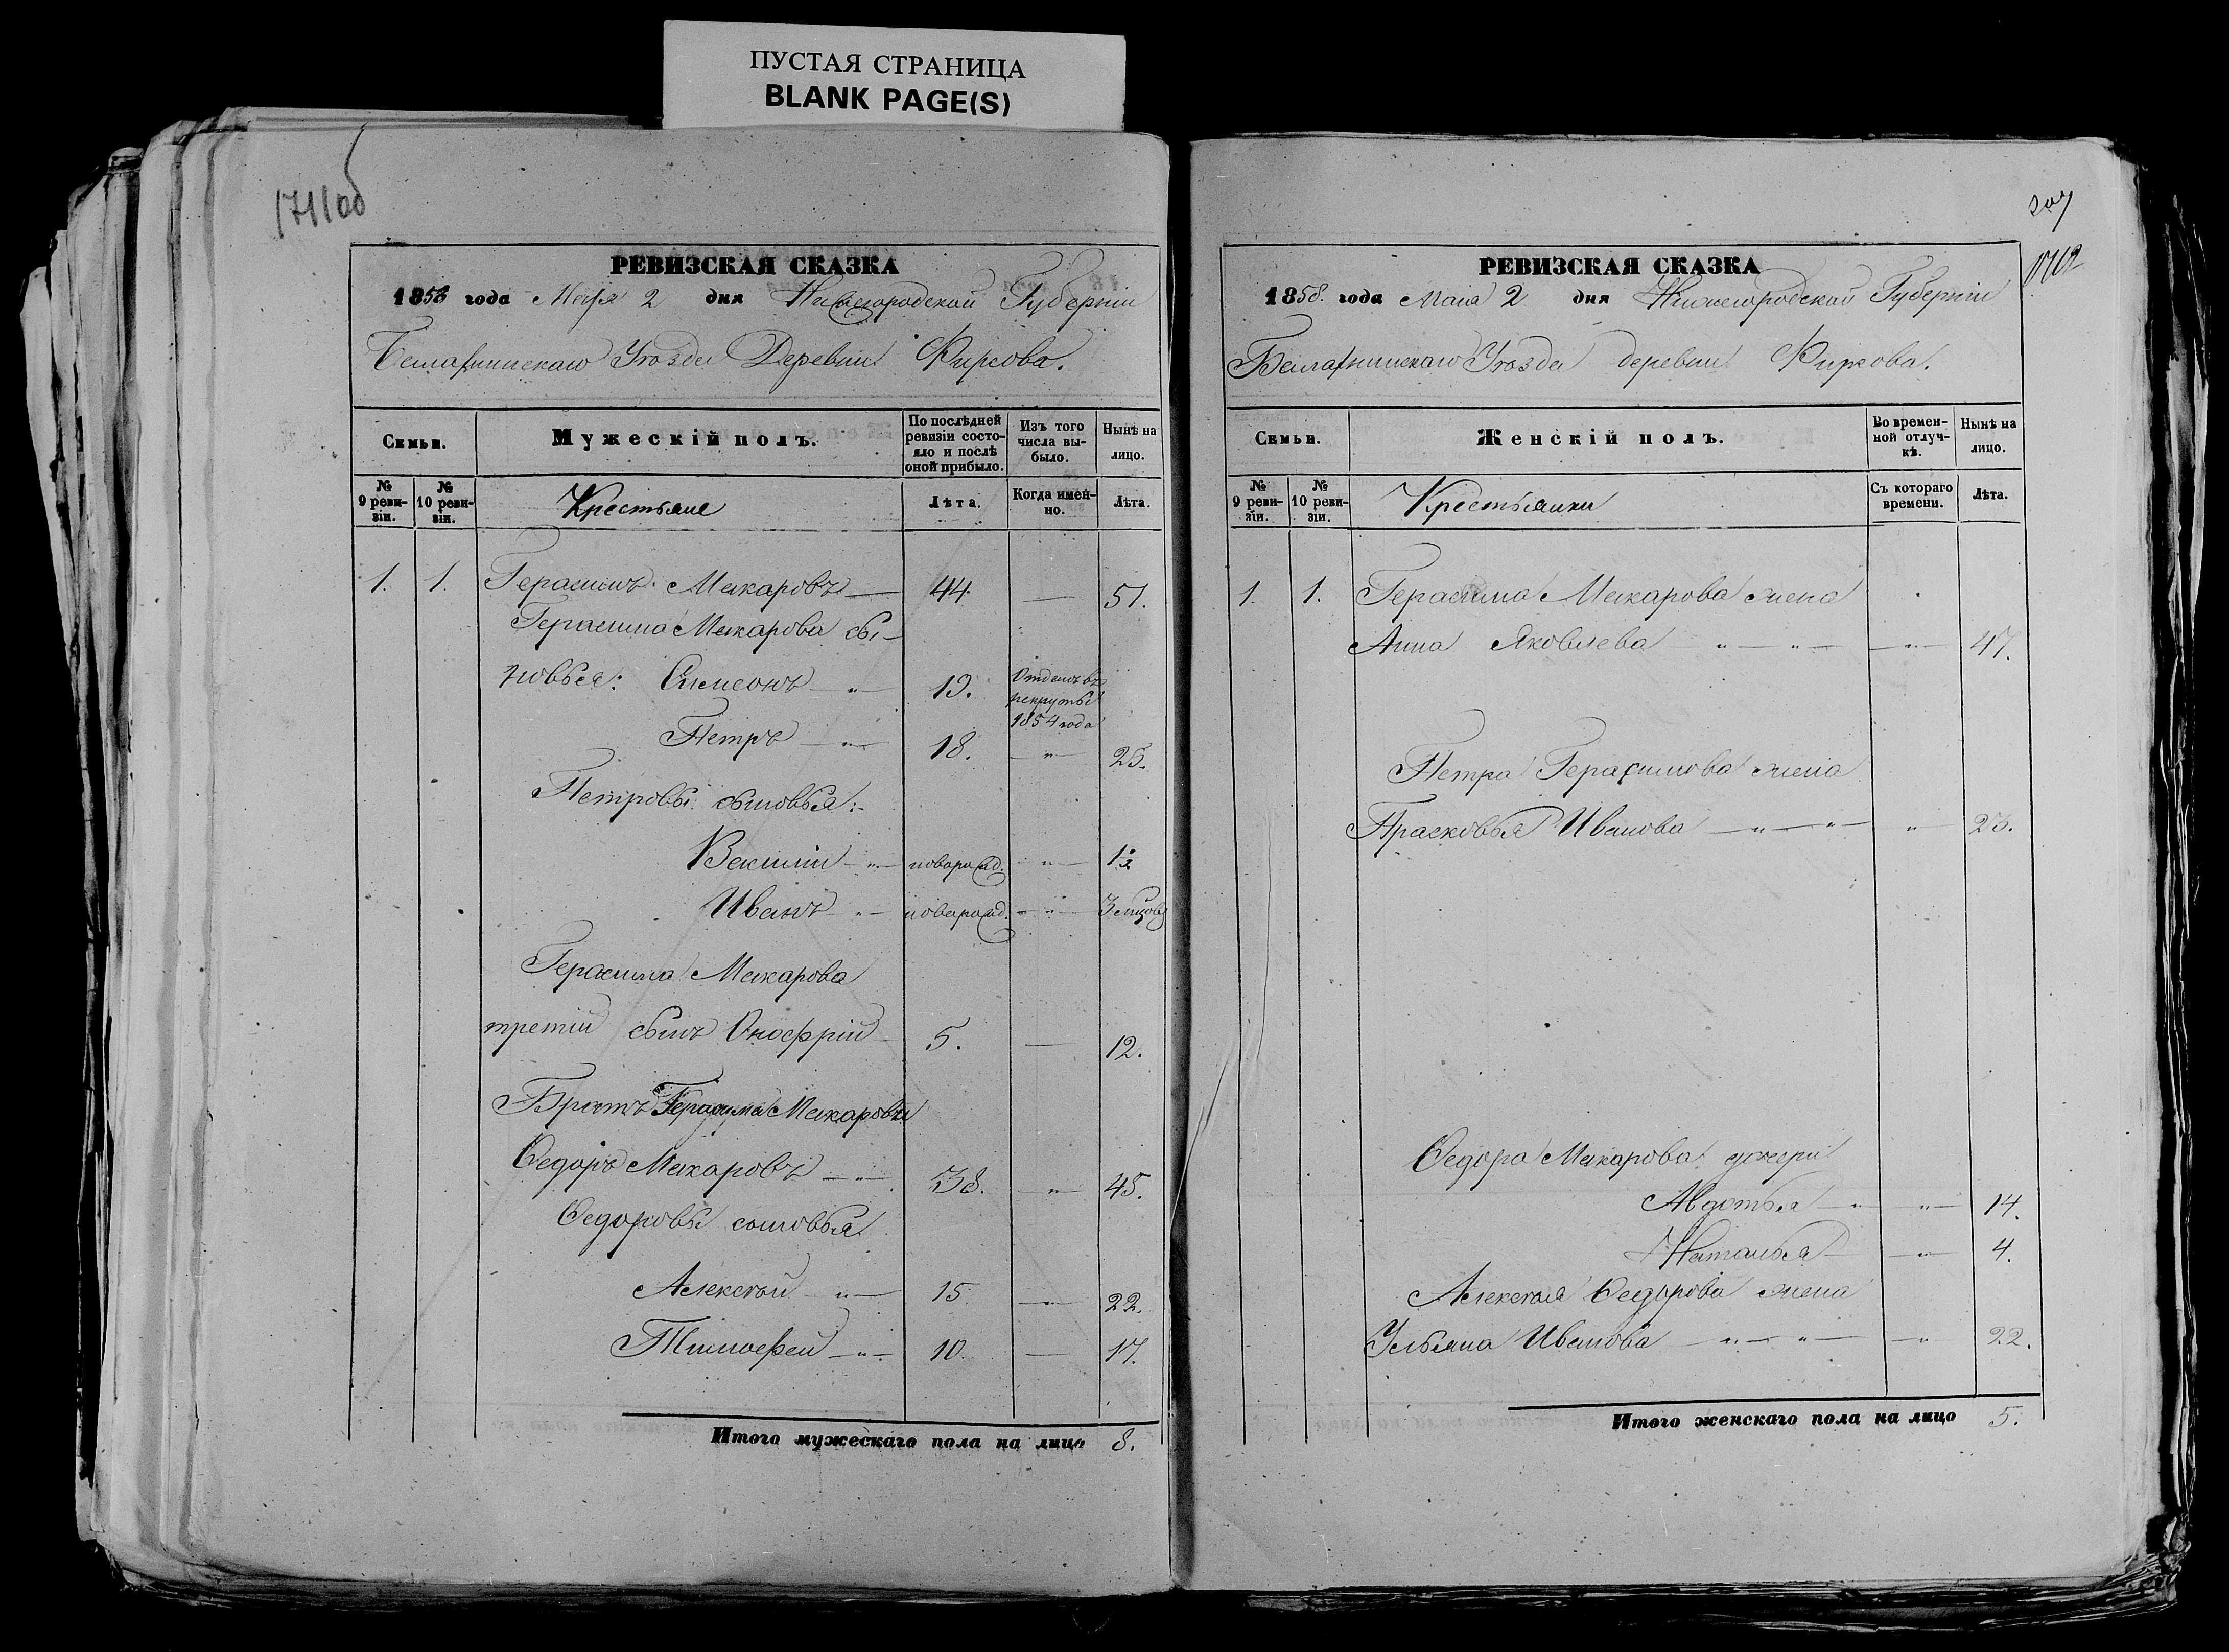 ПУСТАЯ СТРАНИЦА
BLANK PAGE(S)
171 об
РЕВИЗСКАЯ СКАЗКА
1858 года Маія 2 дня Нижегородской Губерніи
Уѣзда Деревни Фирсова.
Семьи.
Мужескій полъ.
По послѣдней ревизіи состояло и послѣ оной прибыло.
Изъ того числа выбыло.
Нынѣ на лицо.
№ 9 ревизіи.
№ 10 ревизіи.
Крестьяне
Лѣта.
Когда именно.
Лѣта.
1. 1. Герасимъ Макаровъ — 44. — 51.
Герасима Макарова сы-
новья: Симеонъ „ — 19. Отданъ въ рекруты 1854 года
Петръ — „ — 18. — „ — 25.
Петровы сыновья:
Василій — „ — новорожд. — „ — 1½
Иванъ — „ — новорожд. — „ — 3 мѣсяцовъ
Герасима Макарова
третій сынъ Онофрій — 5. — 12.
Братъ Герасима Макарова
Ѳедоръ Макаровъ — „ — 38. — „ — 45.
Ѳедоровы сыновья
Алексѣй — „ — 15 — „ — 22.
Тимофей — „ — 10. — 17.
Итого мужескаго пола на лицо 8.
207
172
РЕВИЗСКАЯ СКАЗКА
1858. года Маія 2 дня Нижегородской Губерніи
Уѣзда деревни Фирсова.
Семьи.
Женскій полъ.
Во временной отлучкѣ.
Нынѣ на лицо.
№ 9 ревизіи.
№ 10 ревизіи.
Крестьянки
Съ котораго времени.
Лѣта.
1. 1. Герасима Макарова жена
Анна Яковлева „ — „ — — „ — 47.
Петра Герасимова жена
Прасковья Иванова — „ — „ — „ — 23.
Ѳедора Макарова дочери
Авдотья — „ — „ — 14.
Наталья — — „ — 4.
Алексѣя Ѳедорова жена
Ульяна Иванова — „ — „ — — „ — 22.
Итого женскаго пола на лицо 5.